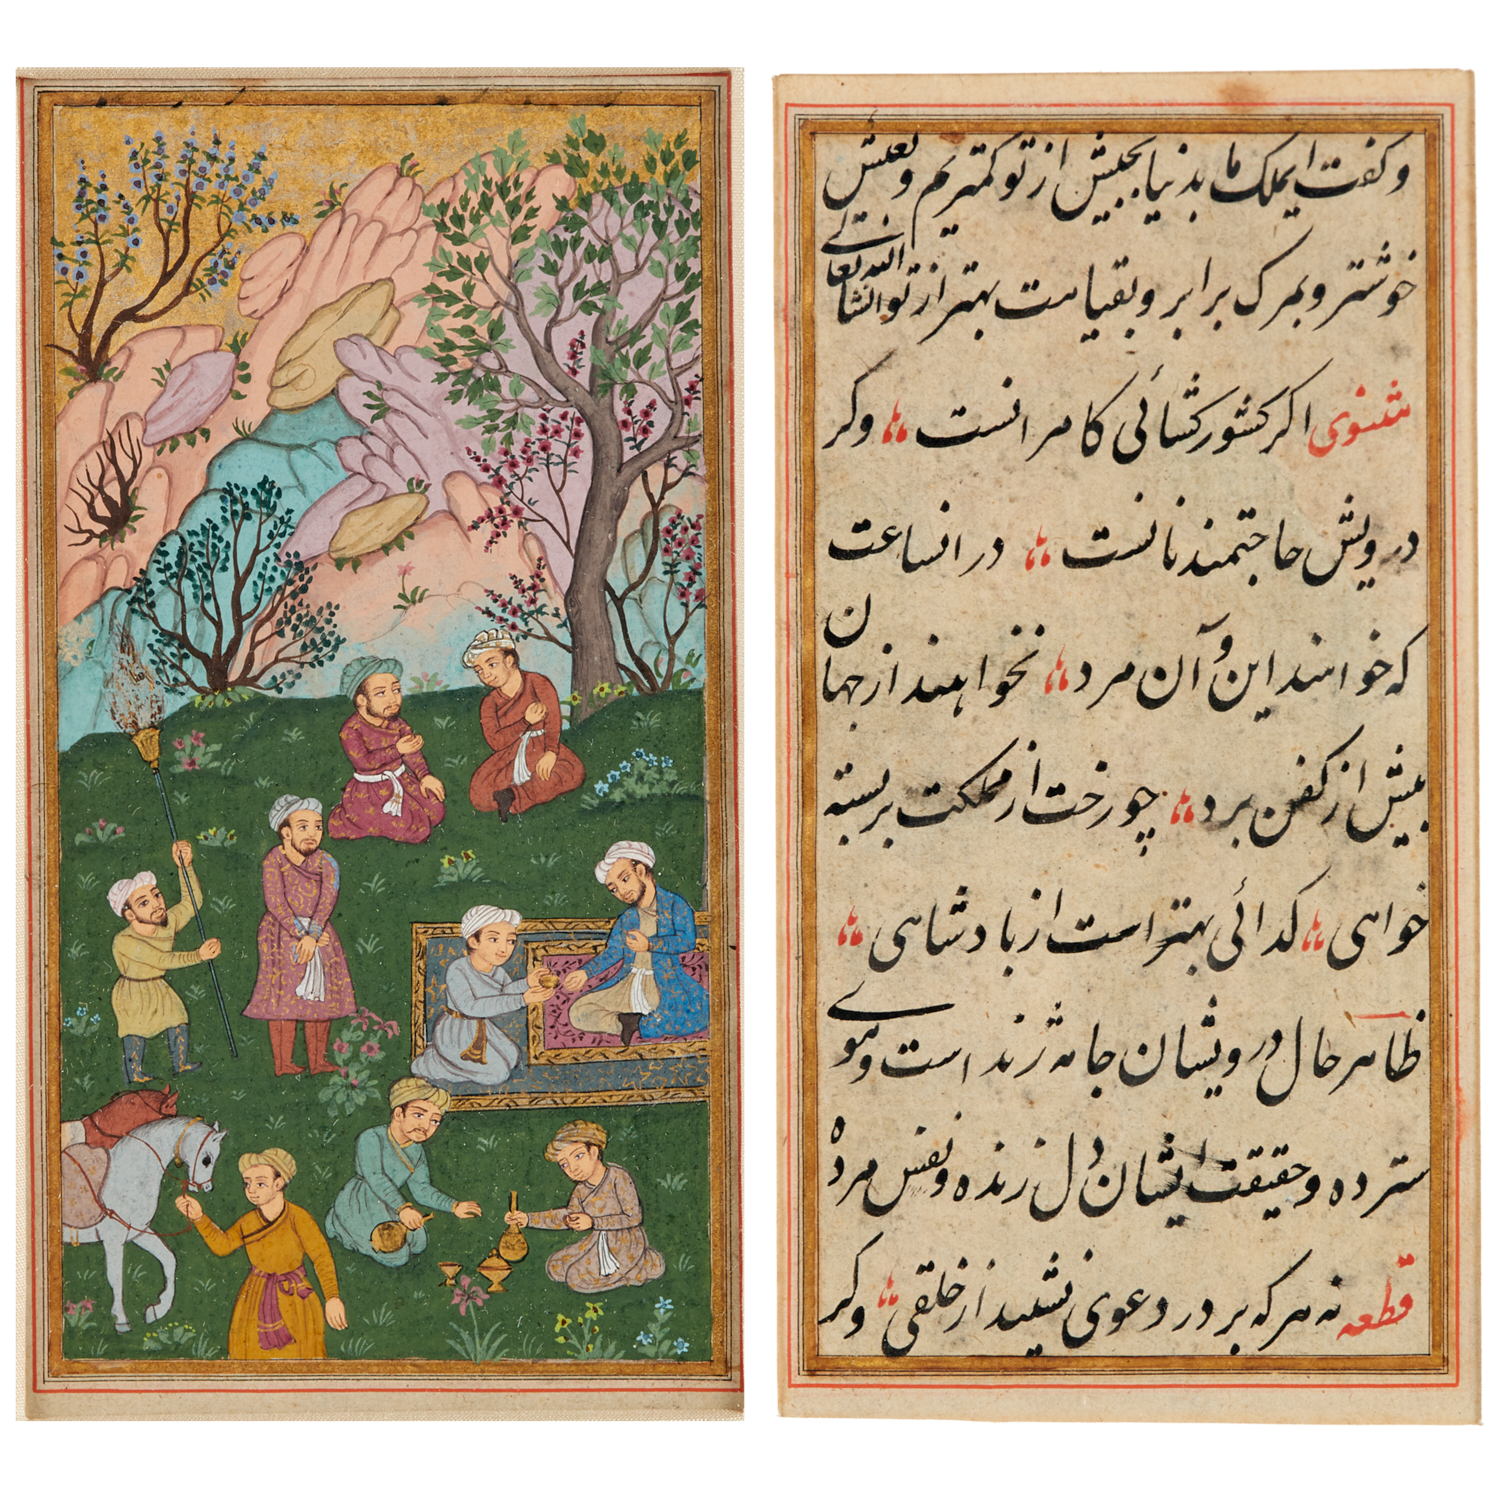 و کفت ایملک ما بدنیا بجیش از تو کمتریم و بعیش
خوشتر و بمرک برابر و بقیامت بهتر از تو انشا الله تعالی
مثنوی اکر کشور کشائی کامرانست وکر
درویش حاجتمند نانست در انساعت
که خواهند این و آن مرد نخواهند از جهان
بیش از کفن برد چو رخت از مملکت بربسته
خواهی کدائی بهتر است از بادشاهی
ظاهر حال درویشان جامه ژنده است و موی
سترده و حقیقت ایشان دل زنده و نفس مرده
قطعه نه هرکه بر در دعوی نشیند از خلقی وکر